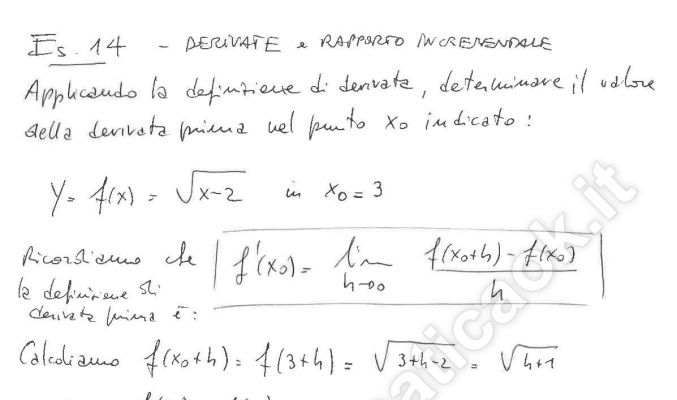 Es. 14 - DERIVATE e RAPPORTO INCREMENTALE
Applicando la definizione di derivata, determinare il valore
della derivata prima nel punto x₀ indicato:
y = f(x) = √(x-2) in x₀ = 3
Ricordiamo che
la definizione di
derivata prima è:
f'(x₀) = lim h→0 (f(x₀+h) - f(x₀))/h
Calcoliamo f(x₀+h) = f(3+h) = √(3+h-2) = √(h+1)
aticaok.it